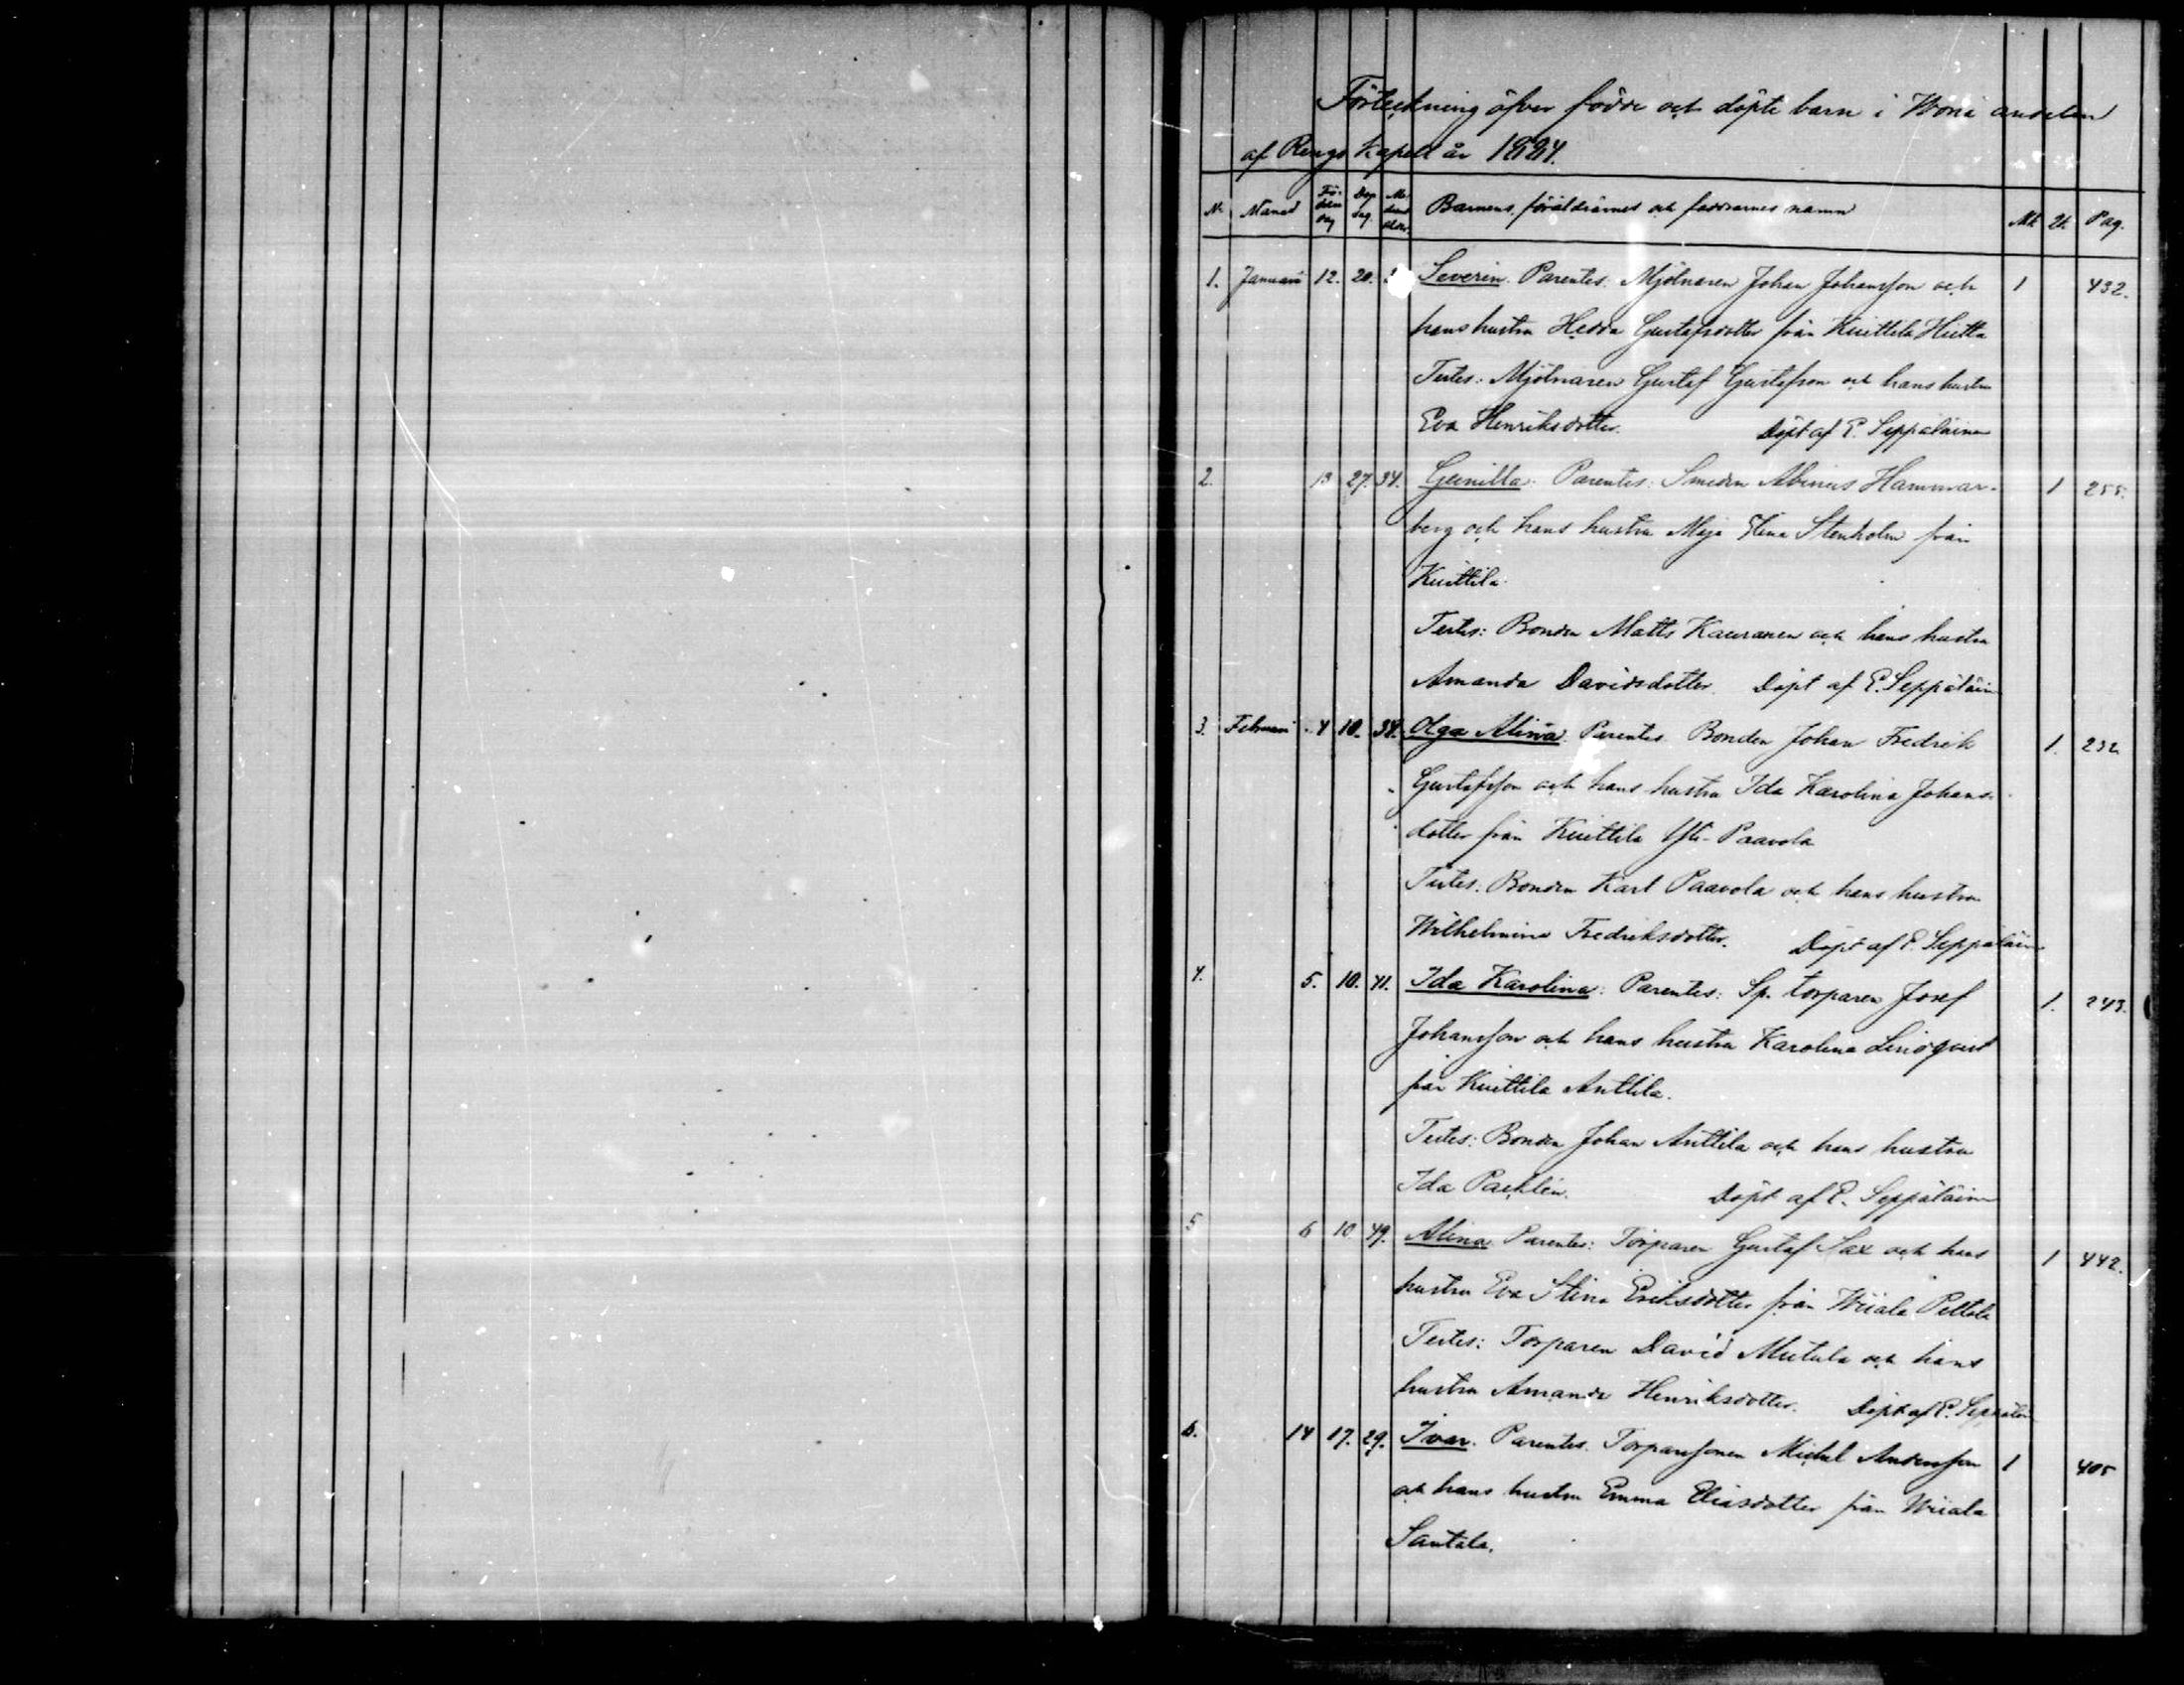 Förteckning öfver födde och döpte barn i Woria andelen
af Rengo Kapell år 1884.
N. Månad Fö-delse dag Dop dag Mo-drens ålder. Barnens, föräldrarnes och faddrarnes namn Mk Qk Pag.
1. Januari 12. 20. Severin. Parentes. Mjölnaren Johan Johansson och 1 432.
hans hustru Hedda Gustafsdotter från Kuittila Hietta
Testes: Mjölnaren Gustaf Gustafsson och hans hustru
Eva Henriksdotter. Döpt af P. Seppäläinen
2. 13 27. 34. Gunilla. Parentes: Smeden Abinus Hammar- 1 255.
berg och hans hustru Maja Stina Stenholm från
Kuittila
Testes: Bonden Matts Kauranen och hans hustru
Amanda Davidsdotter. Döpt af P. Seppäläin
3. Februari 4 10. 34. Olga Alina. Parentes Bonden Johan Fredrik 1. 232
Gustafsson och hans hustru Ida Karolina Johans-
dotter från Kuittila Yli-Paavola
Testes: Bonden Karl Paavola och hans hustru
Wilhelmina Fredriksdotter. Döpt af P. Seppäläin
4. 5. 10. 41. Ida Karolina: Parentes: Sp. torparen Josef 1. 243.
Johansson och hans hustru Karolina Lindqvist
från Kuittila Anttila.
Testes: Bonden Johan Anttila och hans hustru
Ida Packlén. Döpt af P. Seppäläinen
5 6 10 49. Alina. Parentes: Torparen Gustaf Sax och hans 1 442.
hustru Eva Stina Eriksdotter från Wiiala Peltola
Testes: Torparen David Mutula och hans
hustru Amanda Henriksdotter. Döpt af P. Seppäläin
6. 14 17. 29. Ivar. Parentes. Torparesonen Michel Andersson 1 405
och hans hustru Emma Eliasdotter från Wiiala
Santala.